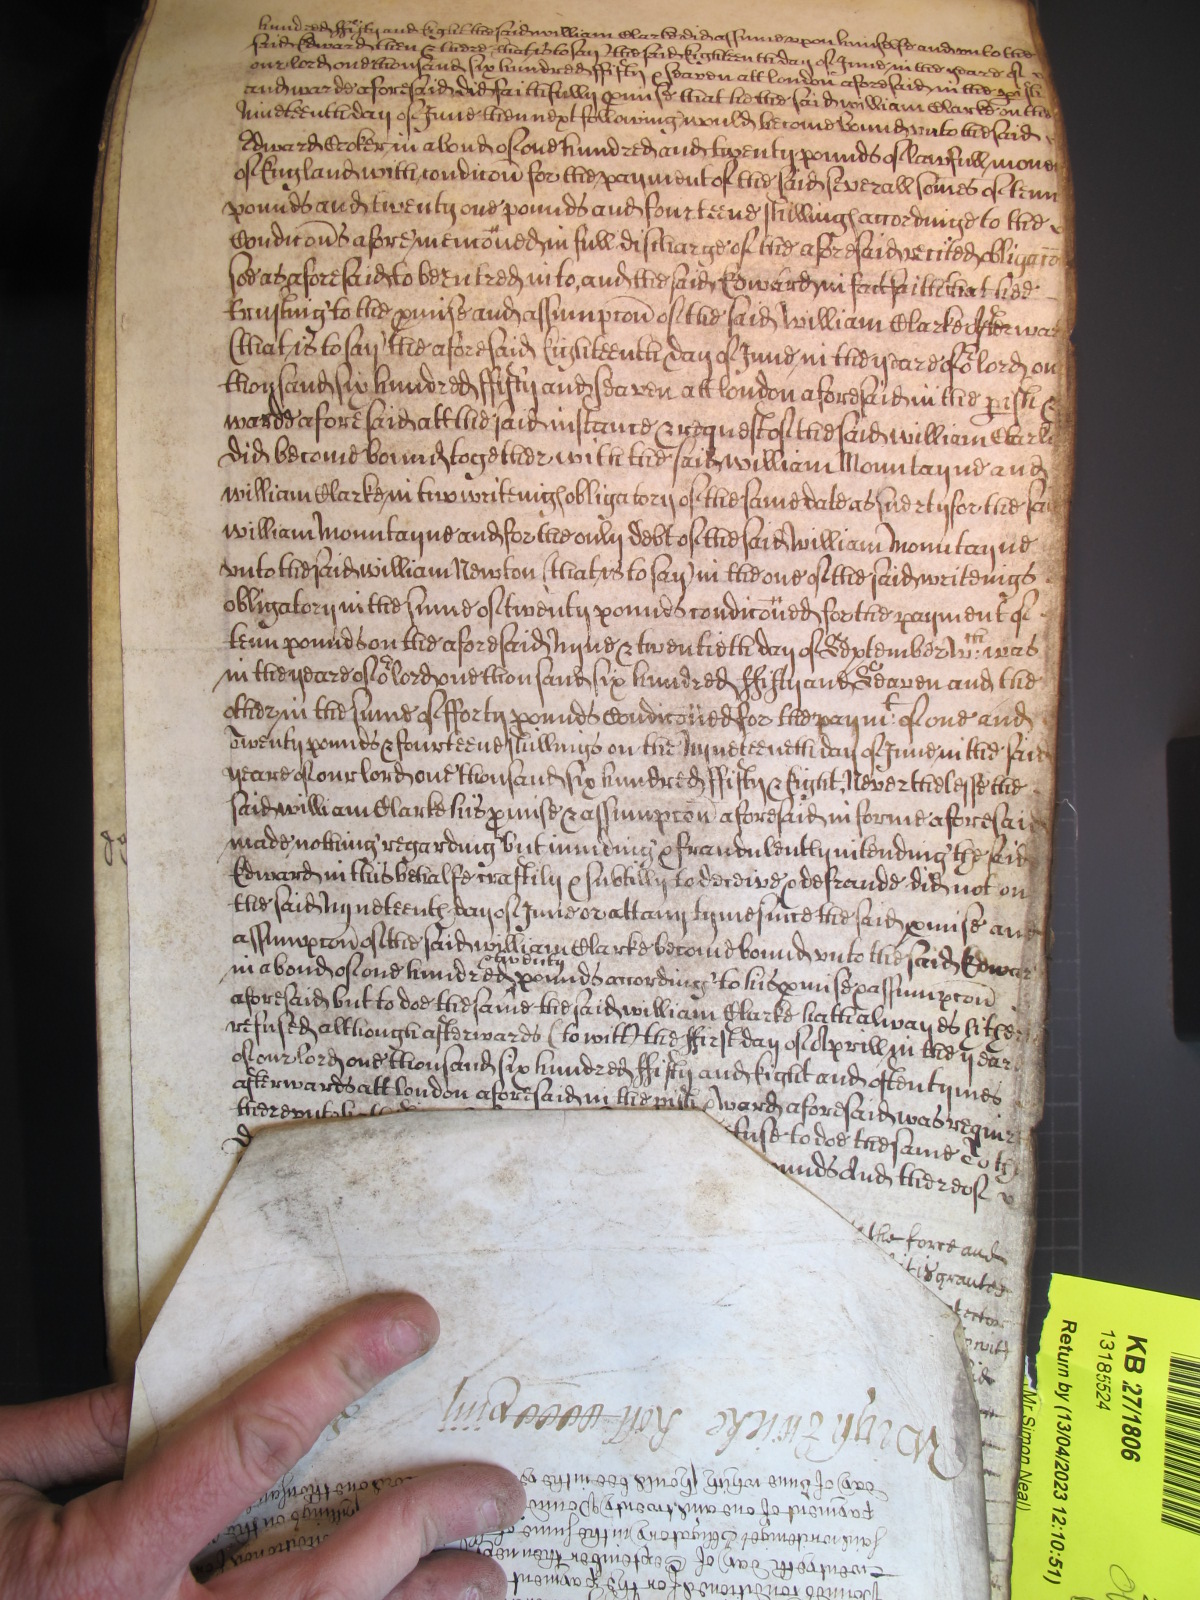 hundred ffifty and Eight the said william Clarke did assume upon himselfe and unto the
said Edward then & there (that is to say) the said Eighteenth day of June in the yeare of
our lord one thousand six hundred ffifty & seaven att london aforesaid in the pish
and warde aforesaid did faithfully pmise that he the said william Clarke on the
Nineteenth day of June then next following would become bound unto the said
Edward Croker in a bond of one hundred and twenty pounds of lawfull money
of England with condicon for the payment of the said severall somes of tenn
pounds and twenty one pounds and fourteene shillings accordinge to the
Condicons aforemenconed in full discharge of the aforesaid recited obligacon
soe as aforesaid to be entred into, and the said Edward in fact saith that hee
trusting to the pmise and assumpcon of the said William Clarke Afterwar
(that is to say) the aforesaid Eighteenth day of June in the yeare of or lord on
thousand six hundred ffifty and seaven att london aforesaid in the pish &
warde aforesaid att the said instance & request of the said william Clarke
did become bound together with the said william Mountayne and
william Clarke in two writeings obligatory of the same date as suerty for the said
william Mountayne and for the only debt of the said william Mountayne
unto the said william Newton (that is to say) in the one of the said writeings
obligatory in the sume of twenty pounds condiconed for the payment of
tenn pounds on the aforesaid Nyne & twentieth day of September wch was
in the yeare of or lord one thousand six hundred ffifty and Seaven and the
other in the sume of fforty pounds Condiconed for the paymt of one and
twenty pounds & fourteene shillings on the Nyneteenth day of June in the said
yeare of our lord one thousand six hundred ffifty & Eight, Neverthelesse the
said william Clarke his pmise & assumpcon aforesaid in forme aforesaid
made nothing regarding but minding & fraudulently intending the said
Edward in this behalfe craftily & subtilly to deceive & defraude did not on
the said Nyneteenth day of June or att any tyme since the said pmise and
assumpcon of the said william Clarke become bound unto the said Edward
in a bond of one hundred & twenty pounds according to his pmise & assumpcon
aforesaid but to doe the same the said william Clarke hath alwayes hither
refused allthough afterwards (to witt) the ffirst day of Aprill in the year
of our lord one thousand six hundred ffifty and Eight and oftentymes
afterwards att london aforesaid in the pish & ward aforesaid was requir
thereunto
fuse to doe the same To th
ounds And thereof
the force and
it is granted
tector
witt
Wrightwicke Roll
day of June which should bee in the y
payment of one and twenty Pounds
in the sume of
twentyeth day of September then next
pounds conditioned for the payment
shillings on the
lord one thousand
KB 27/1806
13185524
Return by (13/04/2023 12:10:51)
(Mr Simon Neal)